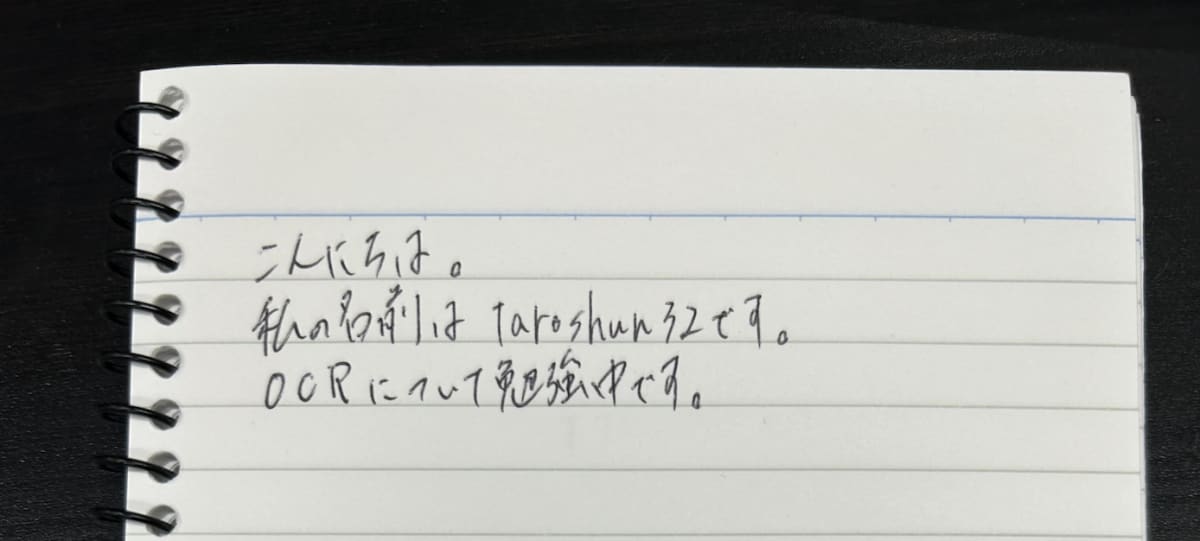 こんにちは。
私の名前は taroshun32です。
OCRについて勉強中です。